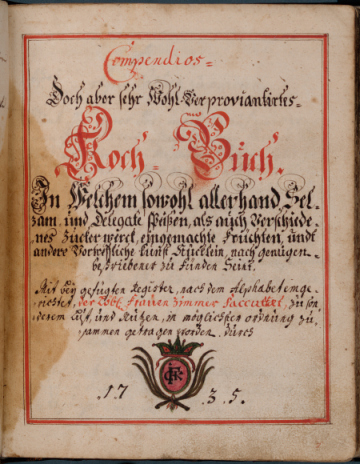 Compendios-
Doch aber sehr Wohl-Verproviantirtes-
Koch-Buch.
In Welchem sowohl allerhand Sel-
zam, und Delegate speißen, als auch Verschiede-
nes Zucker werck, eingemachte Früchten, undt
andere Vortreffliche kunst Stücklein, nach genügen-
beschriebener zu finden Seint,
Mit bey gefügten Register, nach dem Alphabet einge
richtet, der Frauen Zimmer zu son
derem Lust, und Nutzen, in möglichster ordnung zu,
sammen getragen worden.
17 35.